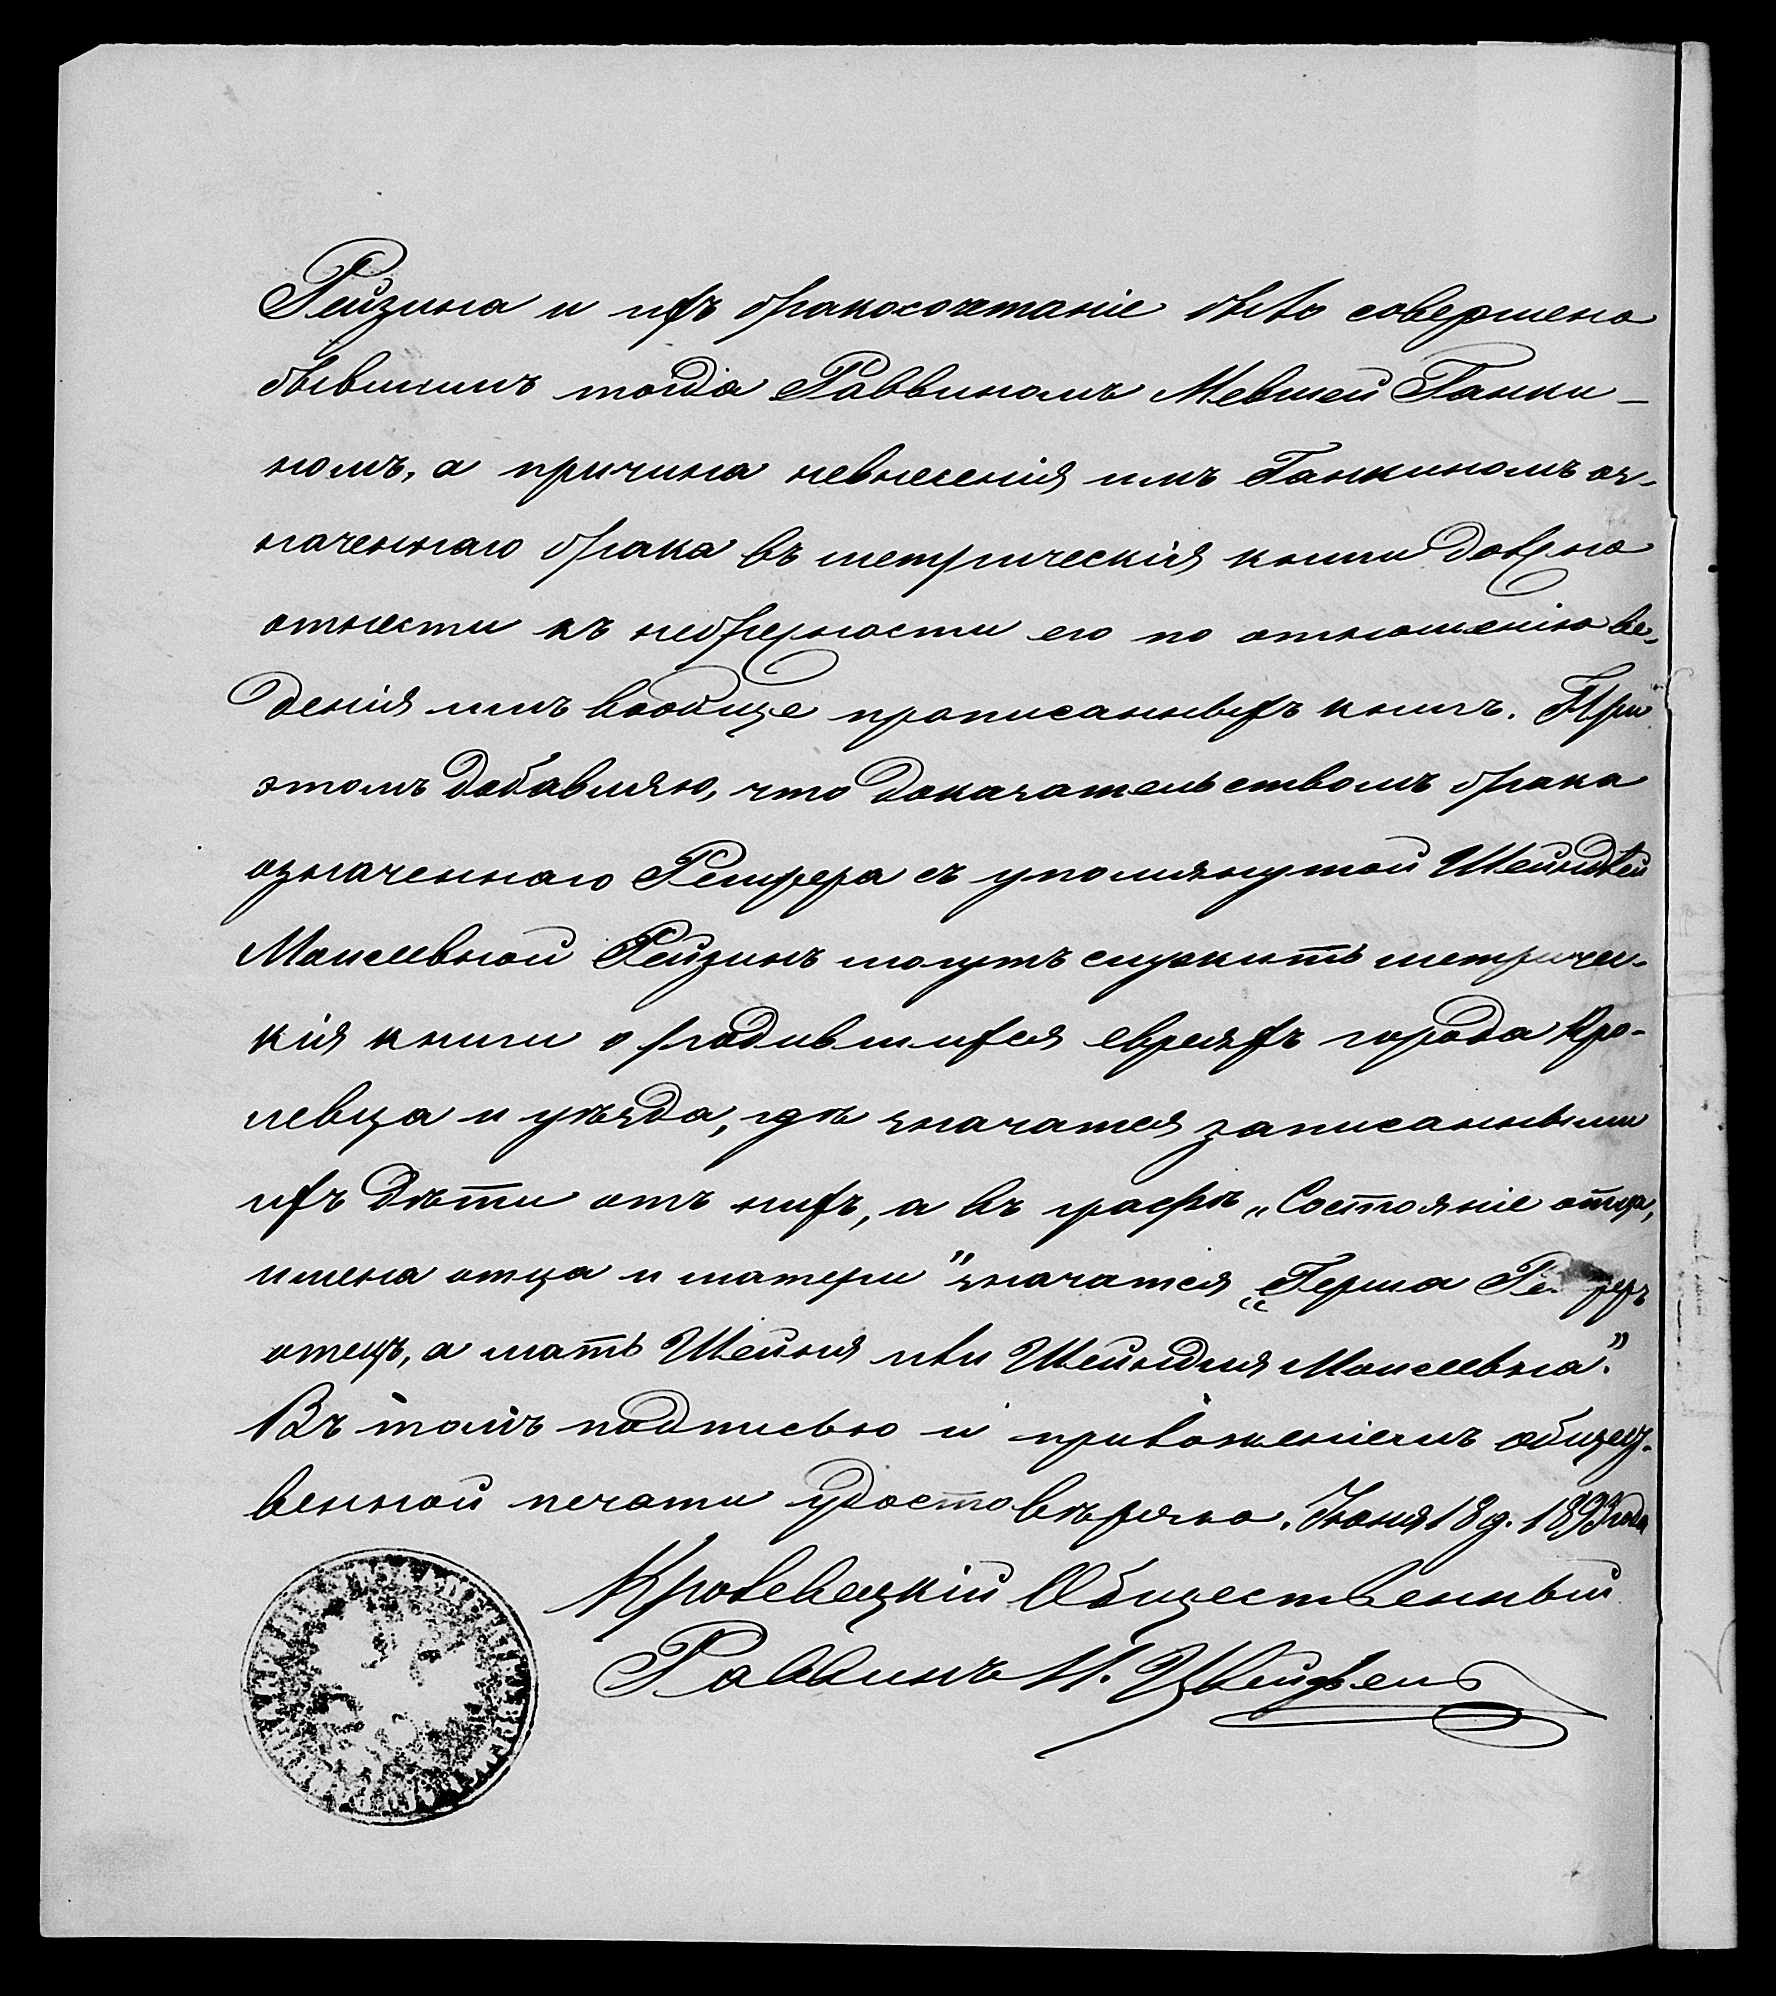 Рейзина и ихъ бракосочетаніе было совершено
бывшимъ тогда Раввиномъ Мевшей Ганки-
номъ, а причина невнесенія имъ Ганкинымъ оз-
наченнаго брака въ метрическія книги должно
отнести къ небрежности его по отношенію ве-
денія имъ вообще прописанныхъ книгъ. При
этомъ добавляю, что доказательствомъ брака
означеннаго Ремфера съ упомянутой Шейндлей
Моисеевной Рейзинъ могутъ служить метричес-
кія книги о родившихся евреяхъ города Кро-
левца и уѣзда, гдѣ значатся записанными
ихъ дѣти отъ нихъ, а въ графѣ „Состояніе отца,
имена отца и матери" значатся „Герша
отецъ, а мать Шейня или Шейндля Моисеевна".
Въ томъ подписью и приложеніемъ общест-
венной печати удостовѣряю. Іюня 18 д. 1893 года
Кролевецкій Общественный
Раввинъ И. Цвейфель